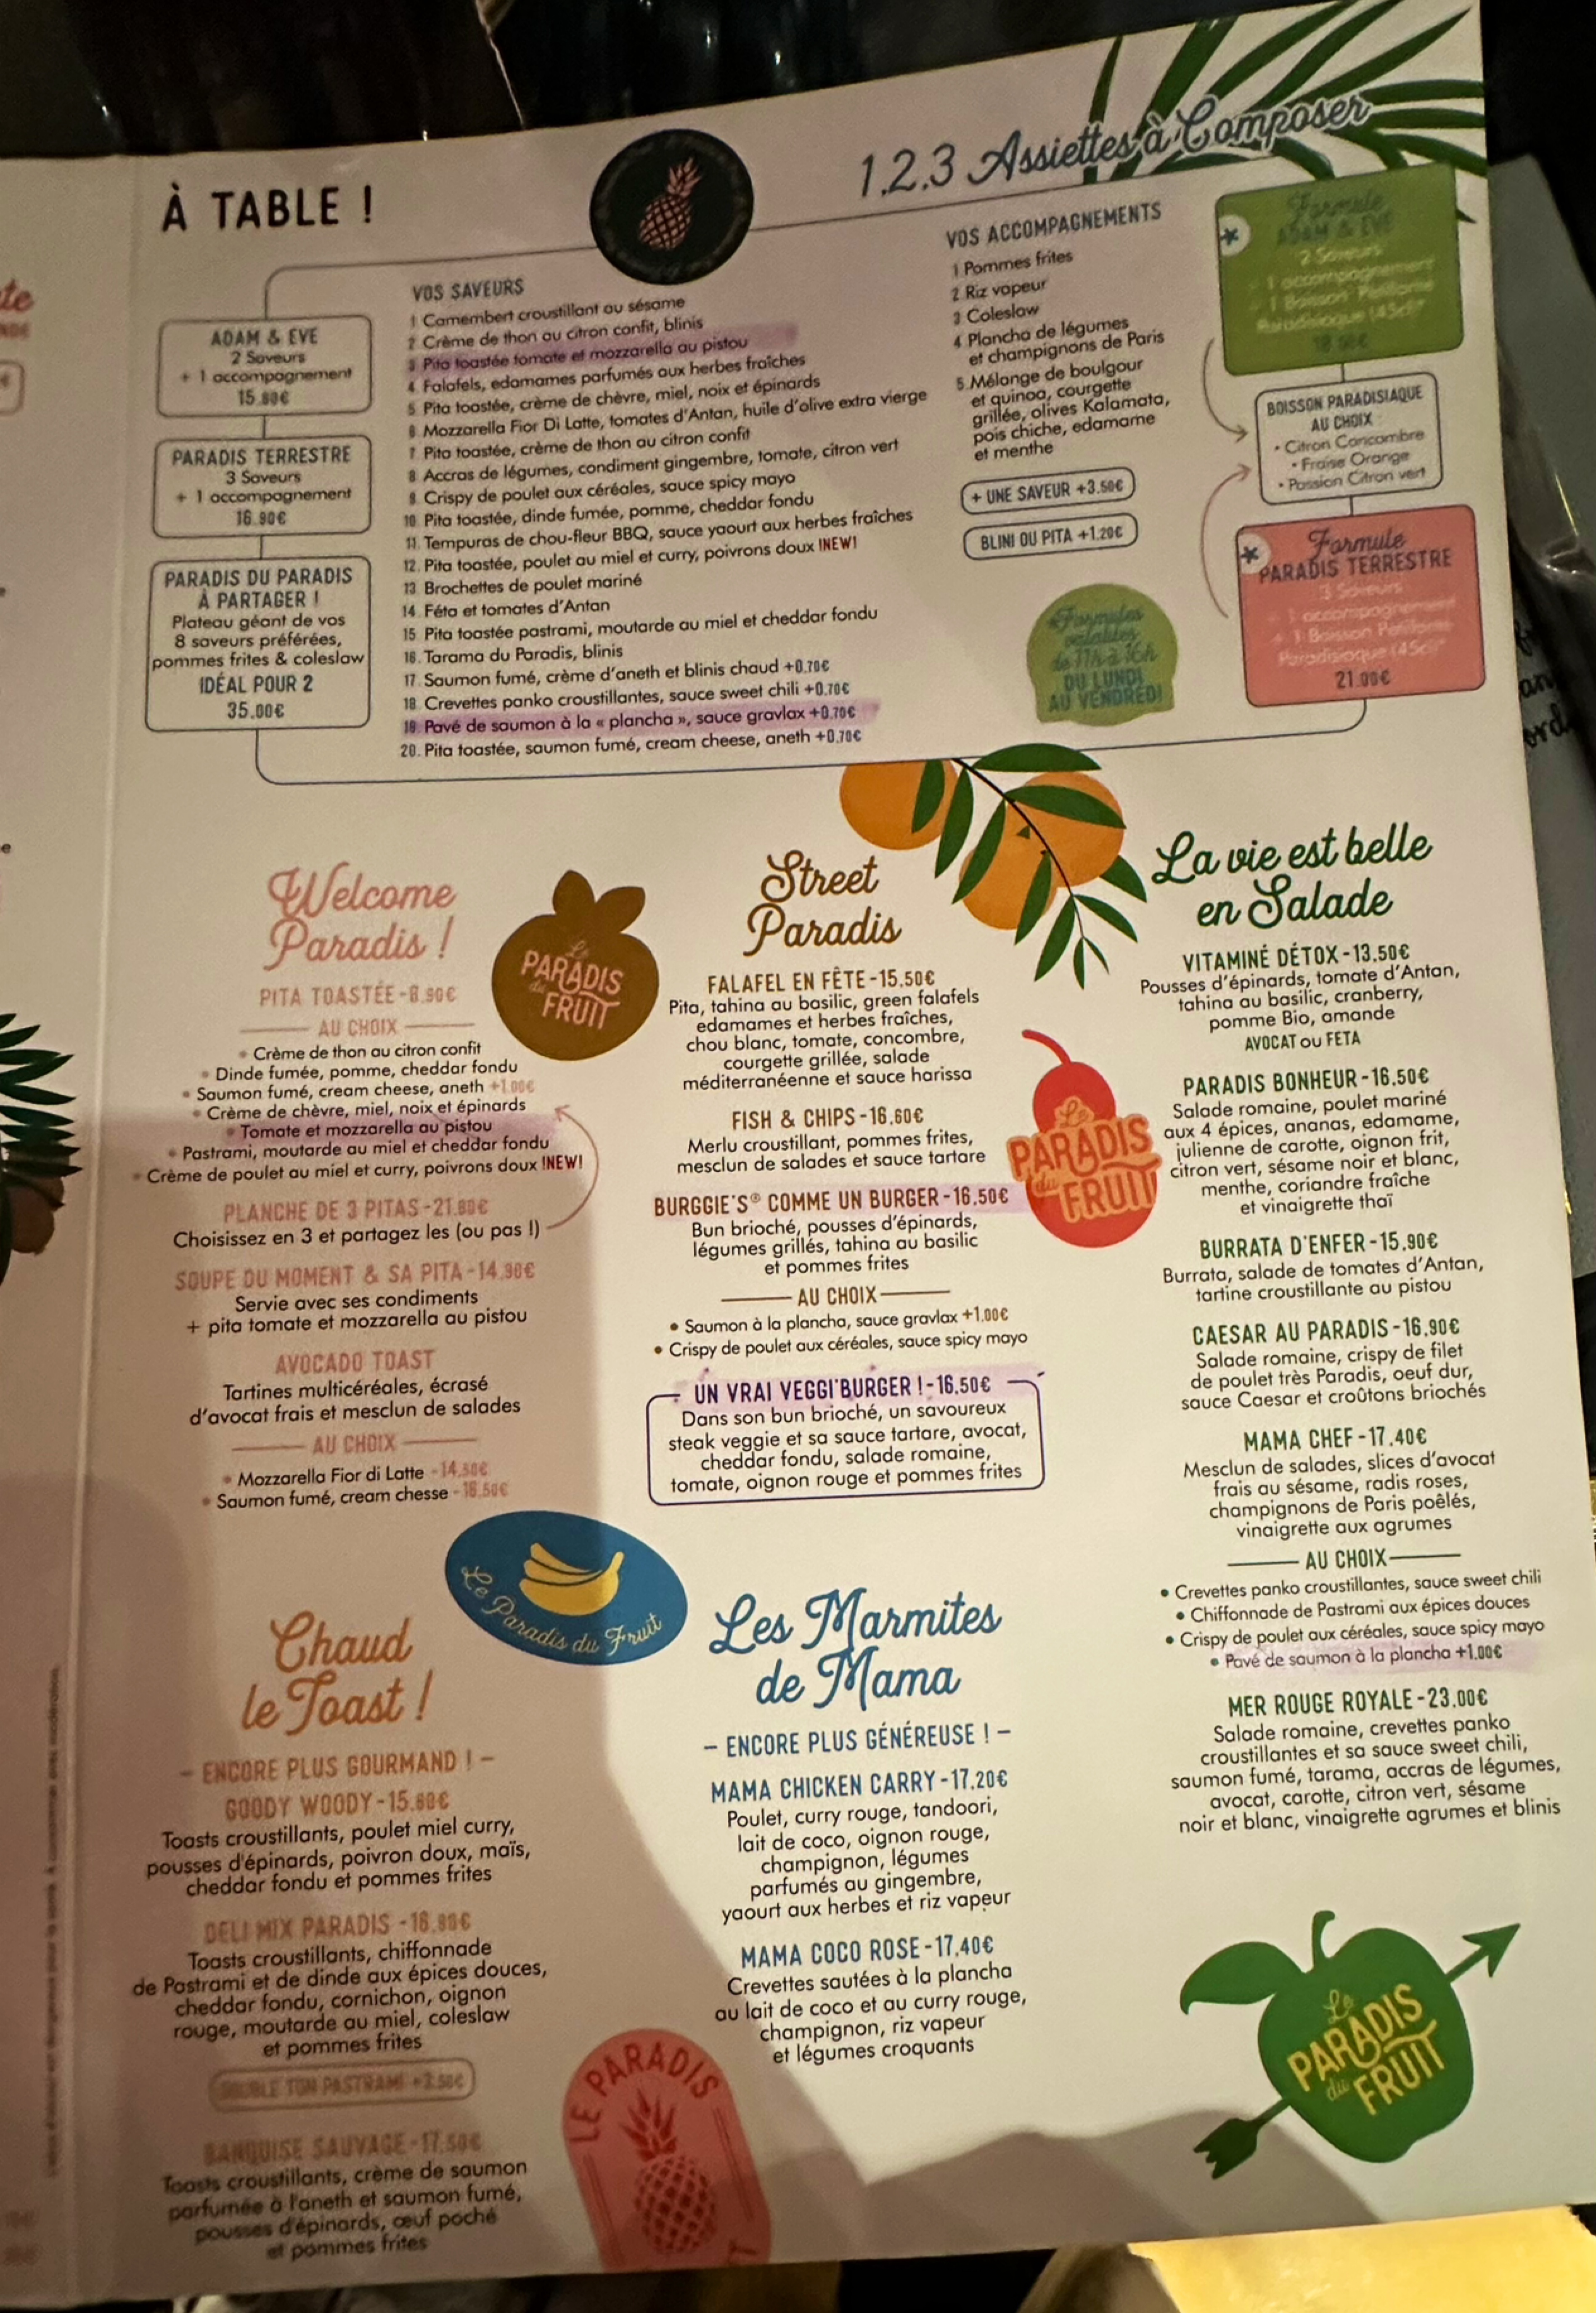 À TABLE !
1.2.3 Assiettes à Composer
ADAM & EVE
2 Saveurs
+ 1 accompagnement
15.80€
PARADIS TERRESTRE
3 Saveurs
+ 1 accompagnement
16.90€
PARADIS DU PARADIS
À PARTAGER !
Plateau géant de vos
8 saveurs préférées,
pommes frites & coleslaw
IDÉAL POUR 2
35.00€
VOS SAVEURS
1 Camembert croustillant au sésame
2 Crème de thon au citron confit, blinis
3 Pita toastée tomate et mozzarella au pistou
4 Falafels, edamames parfumés aux herbes fraîches
5 Pita toastée, crème de chèvre, miel, noix et épinards
6 Mozzarella Fior Di Latte, tomates d'Antan, huile d'olive extra vierge
7 Pita toastée, crème de thon au citron confit
8 Accras de légumes, condiment gingembre, tomate, citron vert
9 Crispy de poulet aux céréales, sauce spicy mayo
10 Pita toastée, dinde fumée, pomme, cheddar fondu
11. Tempuras de chou-fleur BBQ, sauce yaourt aux herbes fraîches
12. Pita toastée, poulet au miel et curry, poivrons doux !NEW!
13 Brochettes de poulet mariné
14. Féta et tomates d'Antan
15 Pita toastée pastrami, moutarde au miel et cheddar fondu
16. Tarama du Paradis, blinis
17. Saumon fumé, crème d'aneth et blinis chaud +0.70€
18. Crevettes panko croustillantes, sauce sweet chili +0.70€
19. Pavé de saumon à la « plancha », sauce gravlax +0.70€
20. Pita toastée, saumon fumé, cream cheese, aneth +0.70€
VOS ACCOMPAGNEMENTS
1 Pommes frites
2 Riz vapeur
3 Coleslaw
4 Plancha de légumes
et champignons de Paris
5 Mélange de boulgour
et quinoa, courgette
grillée, olives Kalamata,
pois chiche, edamame
et menthe
+ UNE SAVEUR +3.50€
BLINI OU PITA +1.20€
Formules
valables
de 11h à 16h
DU LUNDI
AU VENDREDI
Formule
ADAM & EVE
2 Saveurs
1 accompagnement
BOISSON PARADISIAQUE
AU CHOIX
• Citron Concombre
• Fraise Orange
• Passion Citron vert
Formule
PARADIS TERRESTRE
3 Saveurs
1 accompagnement
+ 1 Boisson
21.00€
Welcome
Paradis !
PITA TOASTÉE - 8.90€
AU CHOIX
• Crème de thon au citron confit
• Dinde fumée, pomme, cheddar fondu
• Saumon fumé, cream cheese, aneth +1.00€
• Crème de chèvre, miel, noix et épinards
• Tomate et mozzarella au pistou
• Pastrami, moutarde au miel et cheddar fondu
• Crème de poulet au miel et curry, poivrons doux !NEW!
PLANCHE DE 3 PITAS - 21.80€
Choisissez en 3 et partagez les (ou pas !)
SOUPE DU MOMENT & SA PITA - 14.90€
Servie avec ses condiments
+ pita tomate et mozzarella au pistou
AVOCADO TOAST
Tartines multicéréales, écrasé
d'avocat frais et mesclun de salades
AU CHOIX
• Mozzarella Fior di Latte - 14.50€
• Saumon fumé, cream chesse - 16.50€
Le
PARADIS
du FRUIT
Street
Paradis
FALAFEL EN FÊTE - 15.50€
Pita, tahina au basilic, green falafels
edamames et herbes fraîches,
chou blanc, tomate, concombre,
courgette grillée, salade
méditerranéenne et sauce harissa
FISH & CHIPS - 16.60€
Merlu croustillant, pommes frites,
mesclun de salades et sauce tartare
BURGGIE'S® COMME UN BURGER - 16.50€
Bun brioché, pousses d'épinards,
légumes grillés, tahina au basilic
et pommes frites
AU CHOIX
• Saumon à la plancha, sauce gravlax +1.00€
• Crispy de poulet aux céréales, sauce spicy mayo
UN VRAI VEGGI'BURGER ! - 16.50€
Dans son bun brioché, un savoureux
steak veggie et sa sauce tartare, avocat,
cheddar fondu, salade romaine,
tomate, oignon rouge et pommes frites
Le
PARADIS
du FRUIT
La vie est belle
en Salade
VITAMINÉ DÉTOX - 13.50€
Pousses d'épinards, tomate d'Antan,
tahina au basilic, cranberry,
pomme Bio, amande
AVOCAT ou FETA
PARADIS BONHEUR - 16.50€
Salade romaine, poulet mariné
aux 4 épices, ananas, edamame,
julienne de carotte, oignon frit,
citron vert, sésame noir et blanc,
menthe, coriandre fraîche
et vinaigrette thaï
BURRATA D'ENFER - 15.90€
Burrata, salade de tomates d'Antan,
tartine croustillante au pistou
CAESAR AU PARADIS - 16.90€
Salade romaine, crispy de filet
de poulet très Paradis, oeuf dur,
sauce Caesar et croûtons briochés
MAMA CHEF - 17.40€
Mesclun de salades, slices d'avocat
frais au sésame, radis roses,
champignons de Paris poêlés,
vinaigrette aux agrumes
AU CHOIX
• Crevettes panko croustillantes, sauce sweet chili
• Chiffonnade de Pastrami aux épices douces
• Crispy de poulet aux céréales, sauce spicy mayo
• Pavé de saumon à la plancha +1.00€
MER ROUGE ROYALE - 23.00€
Salade romaine, crevettes panko
croustillantes et sa sauce sweet chili,
saumon fumé, tarama, accras de légumes,
avocat, carotte, citron vert, sésame
noir et blanc, vinaigrette agrumes et blinis
Le Paradis du Fruit
Chaud
le Toast !
- ENCORE PLUS GOURMAND ! -
GOODY WOODY - 15.80€
Toasts croustillants, poulet miel curry,
pousses d'épinards, poivron doux, maïs,
cheddar fondu et pommes frites
DELI MIX PARADIS - 16.90€
Toasts croustillants, chiffonnade
de Pastrami et de dinde aux épices douces,
cheddar fondu, cornichon, oignon
rouge, moutarde au miel, coleslaw
et pommes frites
DOUBLE TON PASTRAMI +3.50€
BANQUISE SAUVAGE - 17.50€
Toasts croustillants, crème de saumon
parfumée à l'aneth et saumon fumé,
pousses d'épinards, œuf poché
et pommes frites
Les Marmites
de Mama
- ENCORE PLUS GÉNÉREUSE ! -
MAMA CHICKEN CARRY - 17.20€
Poulet, curry rouge, tandoori,
lait de coco, oignon rouge,
champignon, légumes
parfumés au gingembre,
yaourt aux herbes et riz vapeur
MAMA COCO ROSE - 17.40€
Crevettes sautées à la plancha
au lait de coco et au curry rouge,
champignon, riz vapeur
et légumes croquants
LE PARADIS
Le
PARADIS
du FRUIT